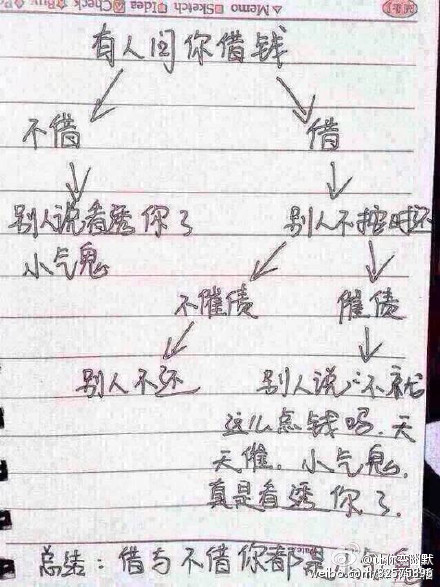 ▲Memo □Sketch □Idea ☑Check ☆Buy
有人问你借钱
不借
借
别人说看透你了
小气鬼
别人不按时还
不催债
催债
别人不还
别人说：不就
这么点钱吗.天
天催.小气鬼.
真是看透你了.
总结：借与不借你都是
weibo.com/